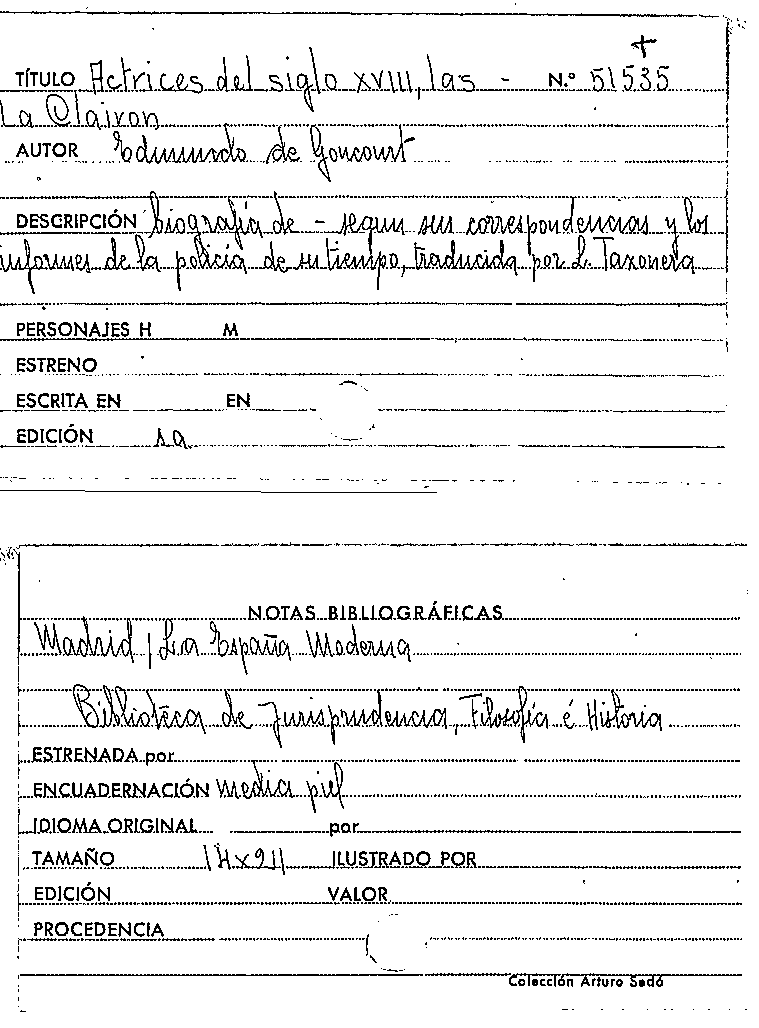 +
TÍTULO Actrices del siglo XVIII, las - N.º 51535
La Clairon
AUTOR Edmundo de Goncourt
DESCRIPCIÓN biografía de - segun sus correspondencias y los
informes de la policía de su tiempo, traducida por L. Taxonera
PERSONAJES H M
ESTRENO
ESCRITA EN EN
EDICIÓN sa
NOTAS BIBLIOGRÁFICAS
Madrid / La España Moderna
Biblioteca de Jurisprudencia, Filosofía é Historia
ESTRENADA por
ENCUADERNACIÓN media piel
IDIOMA ORIGINAL por
TAMAÑO 14x21 ILUSTRADO POR
EDICIÓN VALOR
PROCEDENCIA
Colección Arturo Sedó